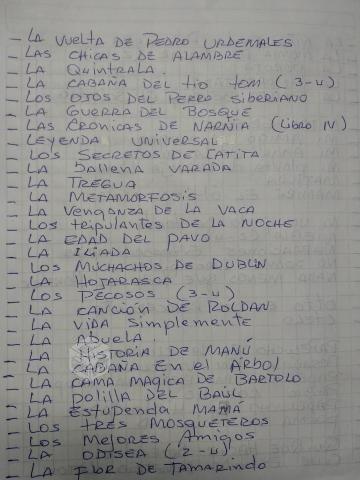 - LA VUELTA DE PEDRO URDEMALES
- LAS CHICAS DE ALAMBRE
- LA QUINTRALA.
- LA CABAÑA DEL tio tom (3-U)
- LOS OJOS DEL PERRO SIBERIANO
- LA GUERRA DEL BOSQUE
- LAS CRONICAS DE NARNIA (LIBRO IV)
- LEYENDA UNIVERSAL
- LOS SECRETOS DE CATITA
- LA ballena VARADA
- LA TREGUA
- LA METAMORFOSIS
- LA VENGANZA DE LA VACA
- LOS tripulantes DE LA NOCHE
- LA EDAD DEL PAVO
- LA ILIADA
- LOS MUCHACHOS DE DUBLIN
- LA HOJARASCA
- LOS PECOSOS (3-U)
- LA CANCIÓN DE ROLDAN
- LA VIDA Simplemente
- LA Abuela
- LA HISTORIA DE MANÚ
- LA CABAÑA EN EL ÁRBOL
- LA CAMA MAGICA DE BARTOLO
- LA POLILLA DEL BAÚL
- LA EStupenda MAMÁ
- LOS TRES MOSQUETEROS
- LOS MEJORES AMIGOS
- LA ODISEA (2-U)
- LA FLOR DE TAMARINDO